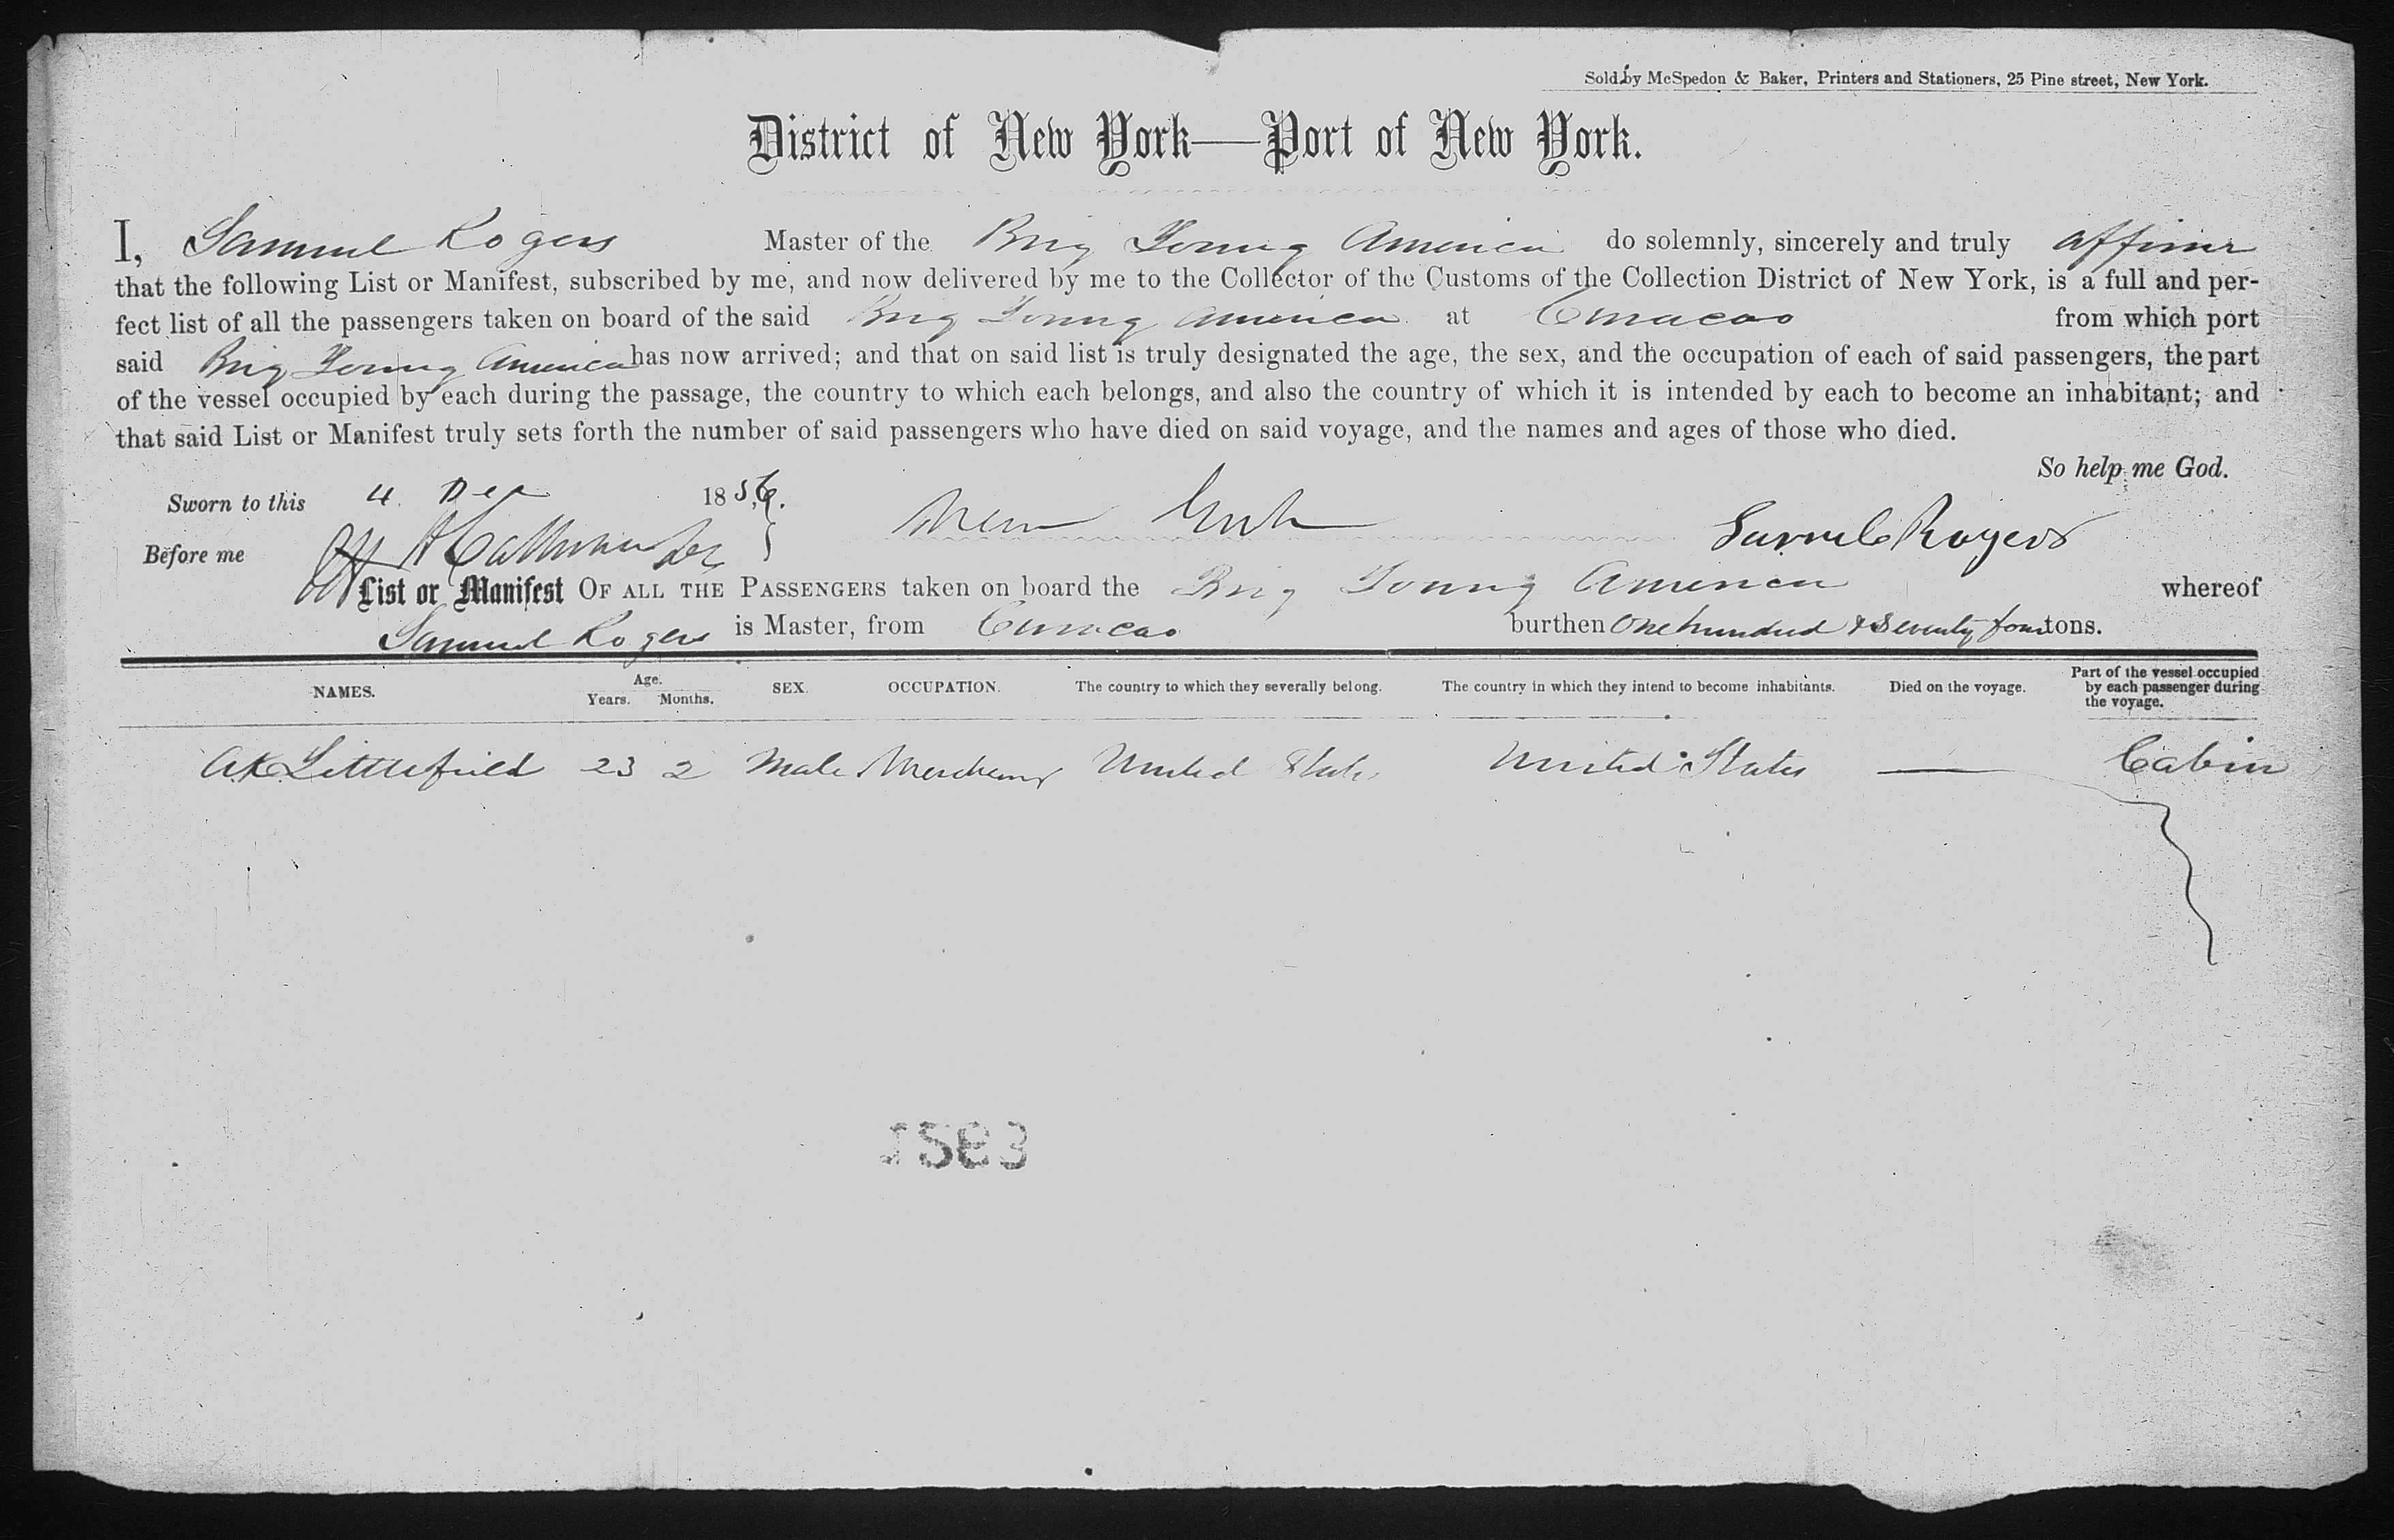 Sold by McSpedon & Baker, Printers and Stationers, 25 Pine street, New York.
District of New York—Port of New York.
I, Samuel Rogers Master of the Brig Young America do solemnly, sincerely and truly affirm
that the following List or Manifest, subscribed by me, and now delivered by me to the Collector of the Customs of the Collection District of New York, is a full and per-
fect list of all the passengers taken on board of the said Brig Young America at Curacao from which port
said Brig Young America has now arrived; and that on said list is truly designated the age, the sex, and the occupation of each of said passengers, the part
of the vessel occupied by each during the passage, the country to which each belongs, and also the country of which it is intended by each to become an inhabitant; and
that said List or Manifest truly sets forth the number of said passengers who have died on said voyage, and the names and ages of those who died.
So help me God.
Sworn to this 4 Dec 1856. New York Samuel Rogers
Before me
List or Manifest OF ALL THE PASSENGERS taken on board the Brig Young America whereof
Samuel Rogers is Master, from Curacao burthen One hundred & Seventy four tons.
NAMES. Age. Years. Months. SEX. OCCUPATION. The country to which they severally belong. The country in which they intend to become inhabitants. Died on the voyage. Part of the vessel occupied by each passenger during the voyage.
A K Littlefield 23 2 Male Merchant United States United States — Cabin